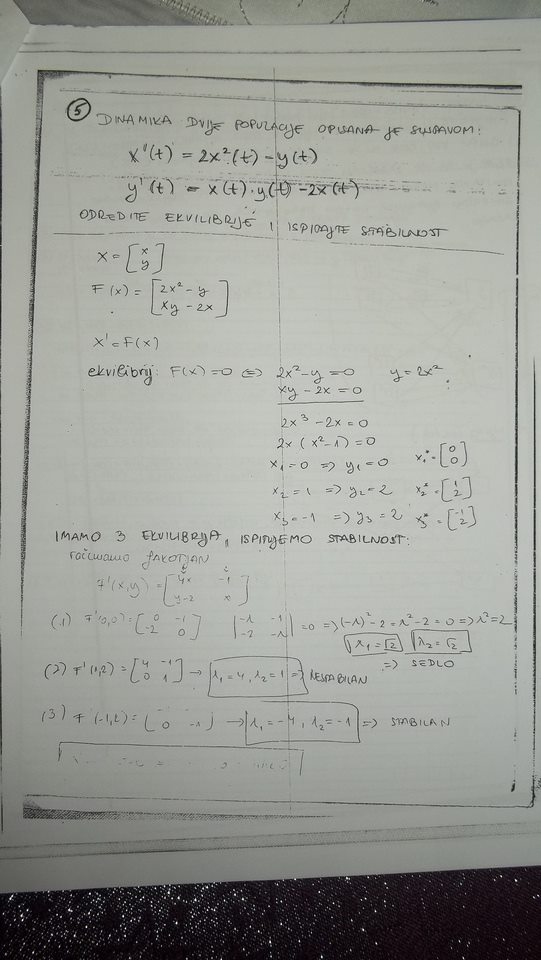 5 DINAMIKA DVIJE POPULACIJE OPISANA JE SUSTAVOM:
x'(t) = 2x²(t) - y(t)
y'(t) = x(t)·y(t) - 2x(t)
ODREDITE EKVILIBRIJE I ISPITAJTE STABILNOST
X = [x y]
F(x) = [2x² - y xy - 2x]
X' = F(x)
ekvilibrij: F(x) = 0 ⇔ 2x² - y = 0 y = 2x²
xy - 2x = 0
2x³ - 2x = 0
2x (x² - 1) = 0
x₁ = 0 ⇒ y₁ = 0 x₁* = [0 0]
x₂ = 1 ⇒ y₂ = 2 x₂* = [1 2]
x₃ = -1 ⇒ y₃ = 2 x₃* = [-1 2]
IMAMO 3 EKVILIBRIJA, ISPITUJEMO STABILNOST:
računamo
F'(x,y) = [4x -1 y-2 x]
(1) F'(0,0) = [0 -1 -2 0] |-λ -1 -2 -λ| = 0 ⇒ (-λ)² - 2 = λ² - 2 = 0 ⇒ λ² = 2
λ₁ = √2 λ₂ = √2
⇒ SEDLO
(2) F'(1,2) = [4 -1 0 1] → λ₁ = 4, λ₂ = 1 ⇒ NESTABILAN
(3) F'(-1,2) = [0 -1] → λ₁ = -4, λ₂ = -1 ⇒ STABILAN